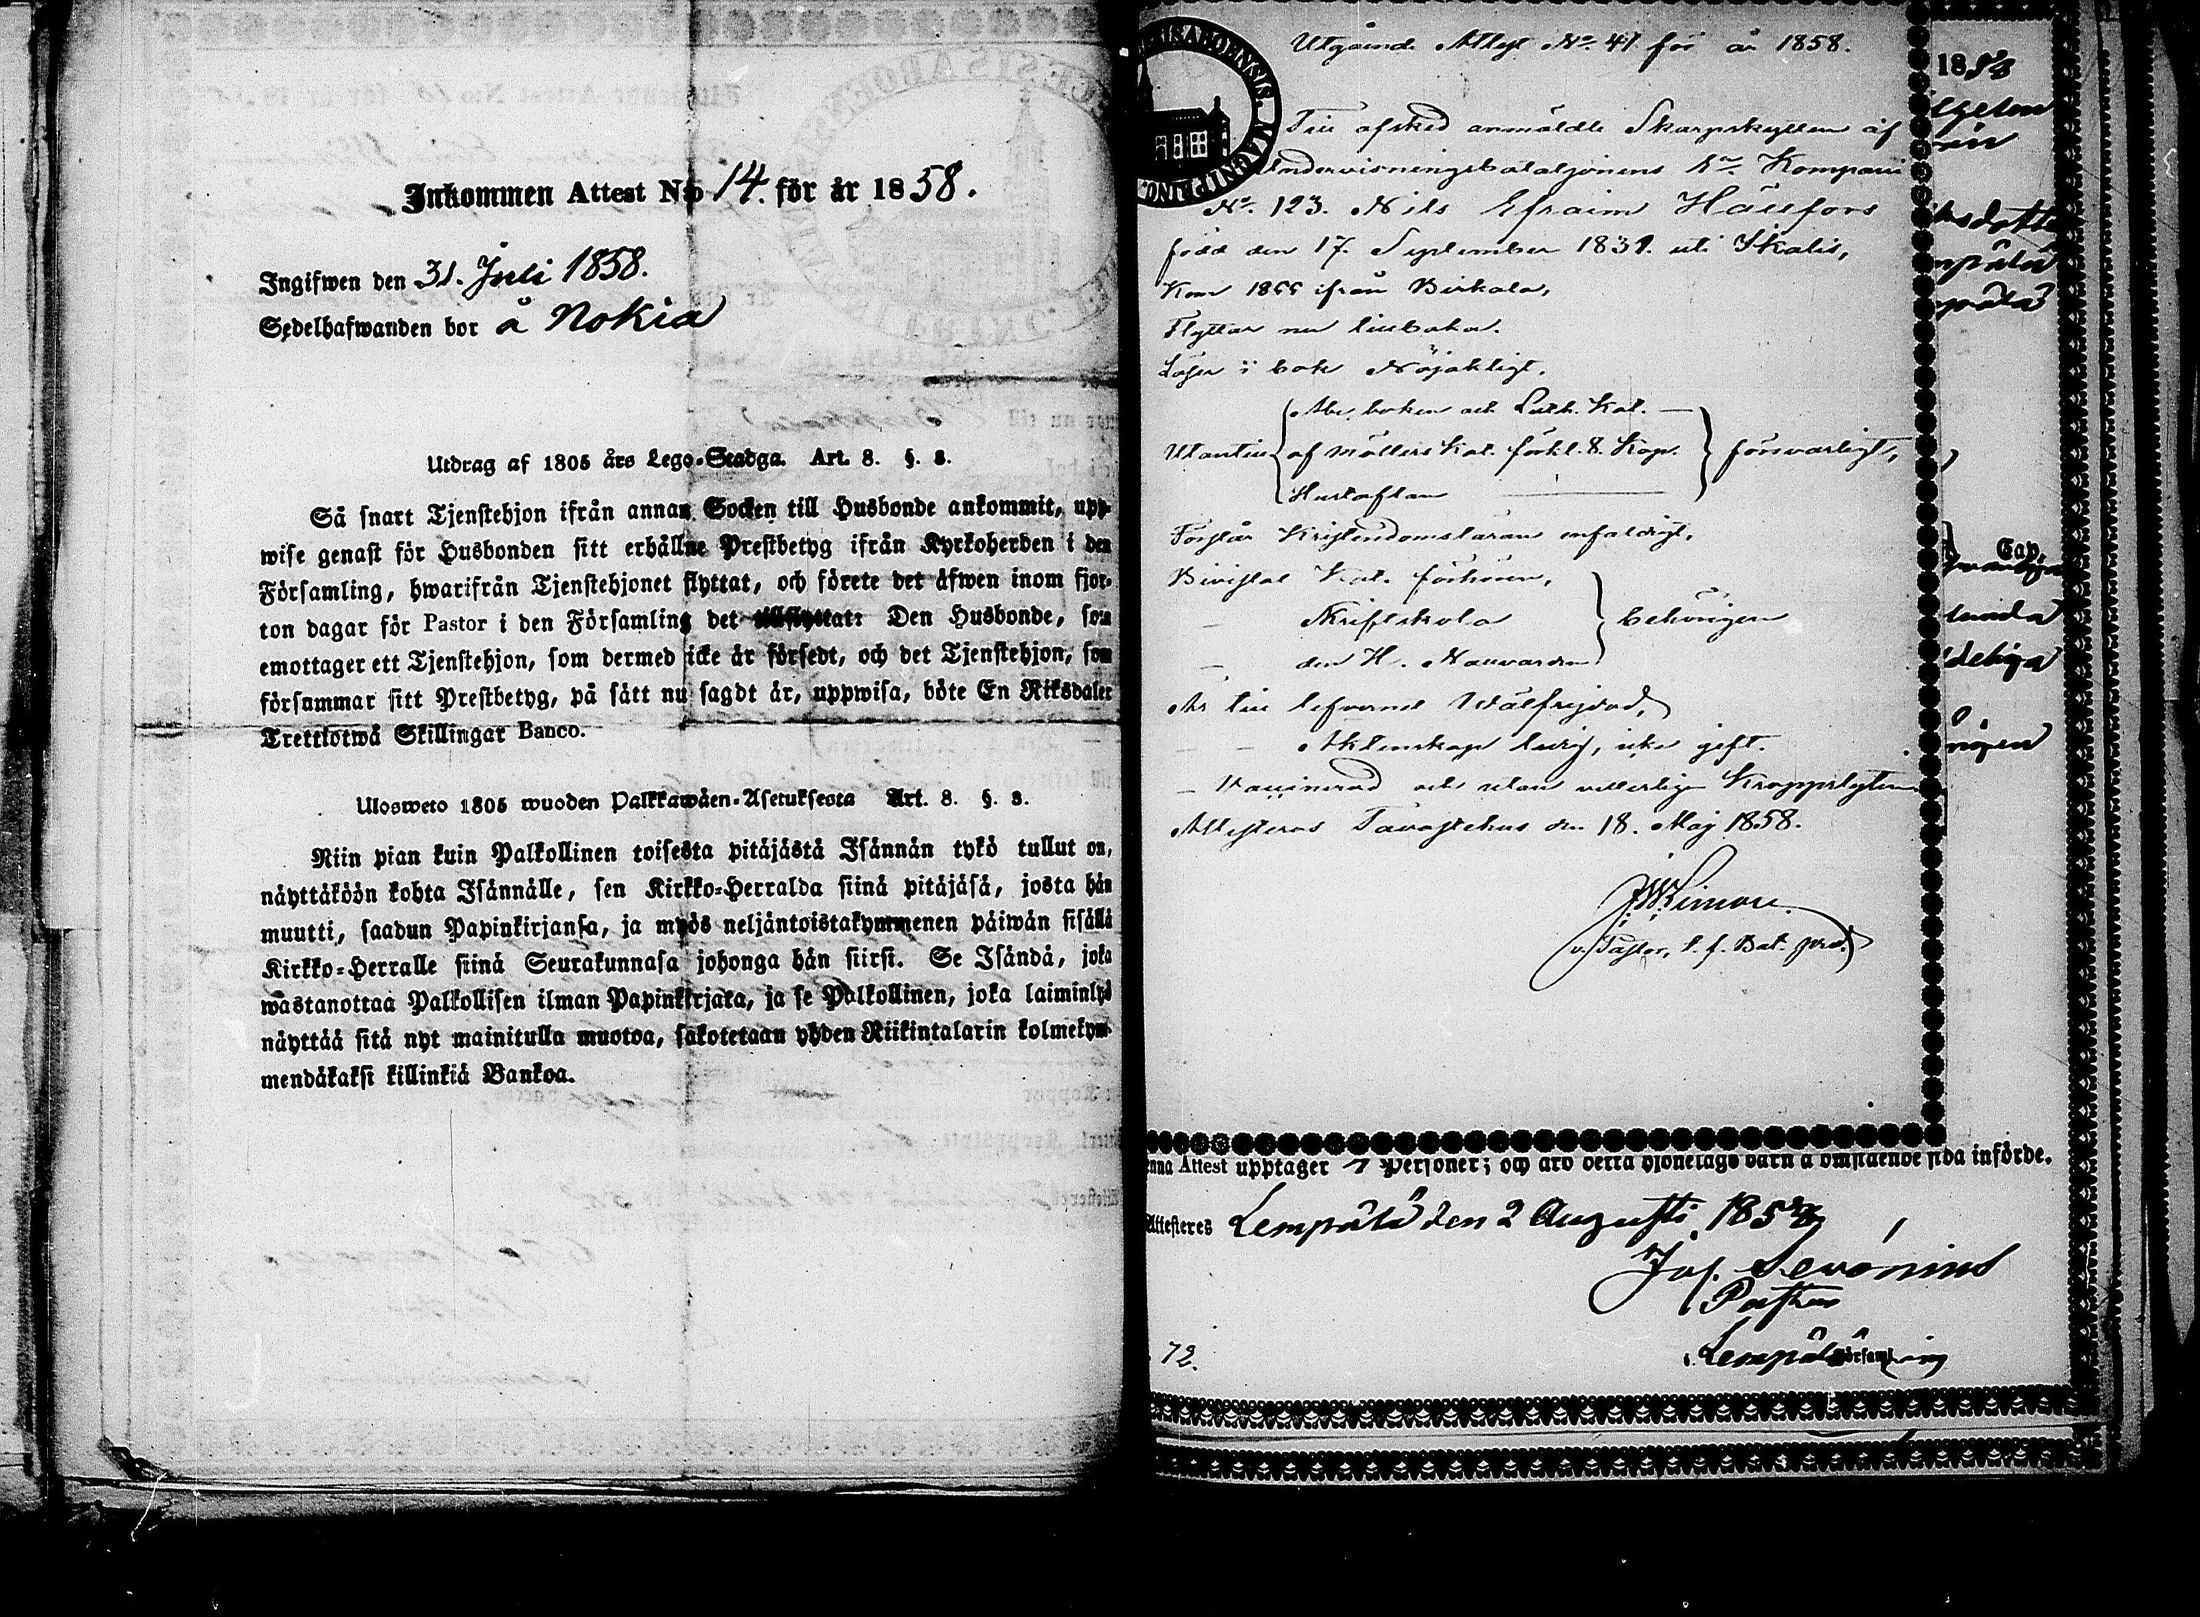 Inkommen Attest N:o 14. för år 1858.
Ingifwen den 31. Juli 1858.
Sedelhafwanden bor å Nokia
Utdrag af 1805 års Lego-Stadga. Art. 8. §. 8.
Så snart Tjenstehjon ifrån annan Socken till Husbonde ankommit, upp-
wise genast för Husbonden sitt erhållne Prestbetyg ifrån Kyrkoherden i den
Församling, hwarifrån Tjenstehjonet flyttat, och förete det äfwen inom fjor-
ton dagar för Pastor i den Församling det tillflyttat: Den Husbonde, som
emottager ett Tjenstehjon, som dermed icke är försedt, och det Tjenstehjon, som
försummar sitt Prestbetyg, på sätt nu sagdt är, uppwisa, böte En Riksdaler
Trettiotwå Skillingar Banco.
Ulosweto 1805 wuoden Palkkawäen-Asetuksesta Art. 8. §. 8.
Niin pian kuin Palkollinen toisesta pitäjästä Isännän tykö tullut on,
näyttäköön kohta Isännälle, sen Kirkko-Herralda siinä pitäjäsä, josta hän
muutti, saadun Papinkirjansa, ja myös neljäntoistakymmenen päiwän sisällä
Kirkko-Herralle siinä Seurakunnasa johonga hän siirsi. Se Isändä, joka
wastanottaa Palkollisen ilman Papinkirjata, ja se Palkollinen, joka laiminlyö
näyttää sitä nyt mainitulla muotoa, sakotetaan yhden Riikintalarin kolmekym-
mendäkaksi killinkiä Bankoa.
Utgående Attest No. 41 för år 1858.
Till afsked anmäldte Skarpskytten af
Undervisningsbataljonens Kompani
No. 123. Nils Efraim Hällfors
född den 17. September 1831. uti Ikalis,
Kom 1855 ifrån Birkala,
Flyttar nu tillbaka.
Läser i bok Nöjaktigt.
Abc boken och Luth. Kat.
Utantill af Möllers Kat. förkl. 8. Kap. försvarligt,
Hustaflan
Förstår Kristendomsläran enfaldigt.
Bivistat Kat. förhören,
Skriftskola behörigen
den H. Nattvarden
Är till lefvernet Wälfrejdad,
Äktenskap ledig, icke gift.
Vaccinerad och utan vitterlige Kroppslyten
Attesteras Tavastehus den 18. Maj 1858.
v. Pastor, t. f. Bat. pred.
1858
Cap.
enna Attest upptager 7 Personer; och äro detta hjonelags barn å omstående sida införde.
Attesteres Lempälä den 2 Augusti 1858
Jos. Sevonius
Pastor
72.
i Lempälä Församling